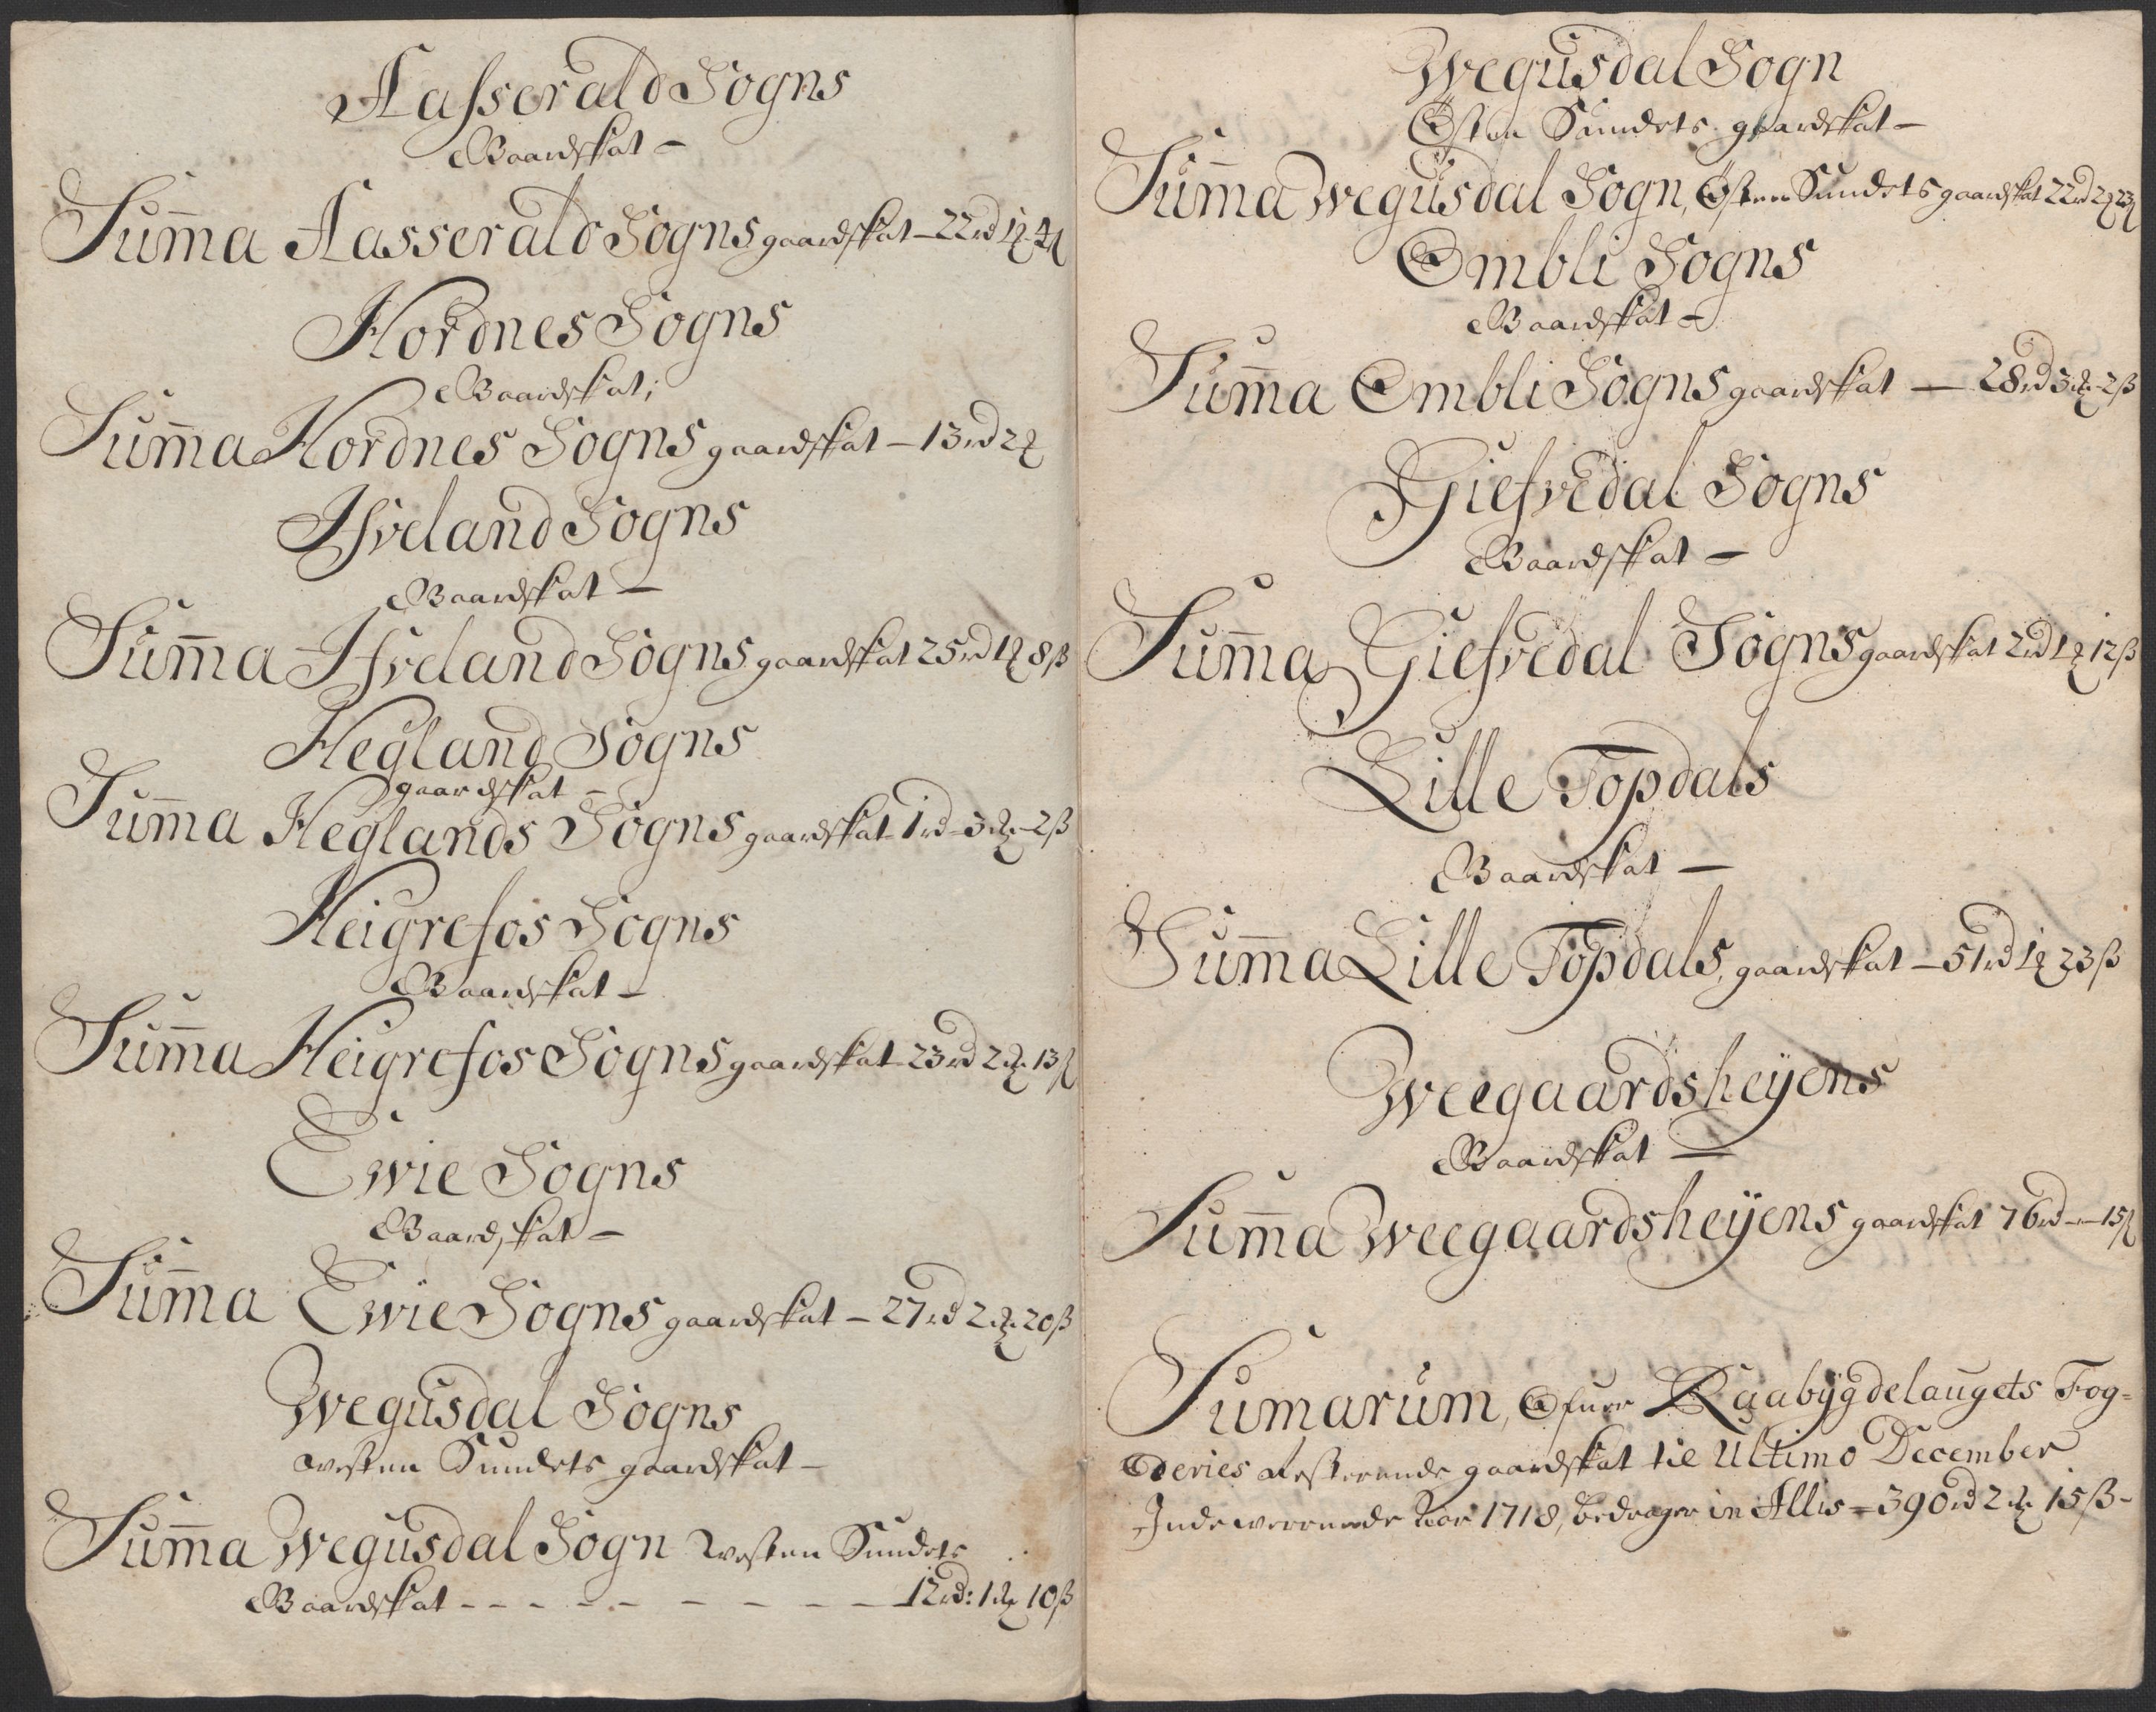 Aasserald Sogns
Gaardskat –
Summa Aasserald Sogns gaardskat – 22 rd 1 ꝶ 4 ß
Hordnes Sogns
Gaardskat;
Summa Hordnes Sogns gaardskat – 13 rd 2 ꝶ
Ifveland Sogns
Gaardskat –
Summa Ifveland Sogns gaardskat 25 rd 1 ꝶ 8 ß
Hegland Sogns
gaardskat –
Summa Heglands Sogns gaardskat – 1 rd – 3 ꝶ – 2 ß
Heigrefos Sogns
Gaardskat –
Summa Heigrefos Sogns gaardskat – 23 rd 2 ꝶ 13 ß
Ewie Sogns
Gaardskat –
Summa Ewie Sogns gaardskat – 27 rd 2 ꝶ 20 ß
Wegusdal Sogns
westen Sundets gaardskat –
Summa Wegusdal Sogn westen Sundets
Gaardskat – – – – – – – – – – 12 rd: 1 ꝶ 10 ß
Wegusdal Sogn
Østen Sundets gaardskat –
Summa Wegusdal Sogn, Østen Sundets gaardskat 22 rd 2 ꝶ 23 ß
Ombli Sogns
Gaardskat –
Summa Ombli Sogns gaardskat – 28 rd 3 ꝶ – 2 ß
Giefvedal Sogns
Gaardskat –
Summa Giefvedal Sogns gaardskat 2 rd 1 ꝶ 12 ß
Lille Topdals
Gaardskat –
Summa Lille Topdals, gaardskat – 51 rd 1 ꝶ 23 ß
Weegaardsheÿens
Gaardskat –
Summa Weegaardsheÿens gaardskat 76 rd – – 15 ß
Sumarum, Ofuer Raabÿgdelaugets Fog-
deries resterende gaardskat til Ultimo December
Indeverende Aar 1718, bedrager in Allis = 390 rd 2 ꝶ 15 ß –